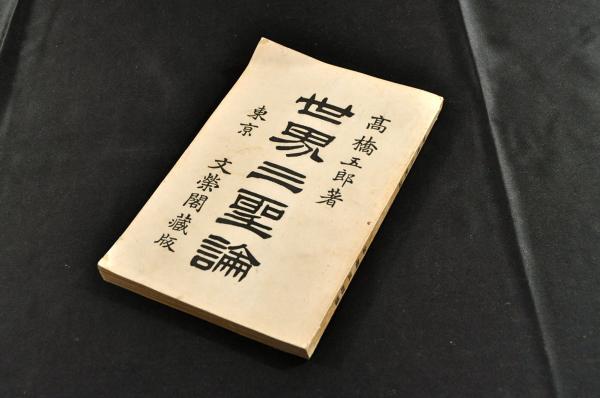 髙橋五郎著
世界三聖論
東京 文榮閣藏版